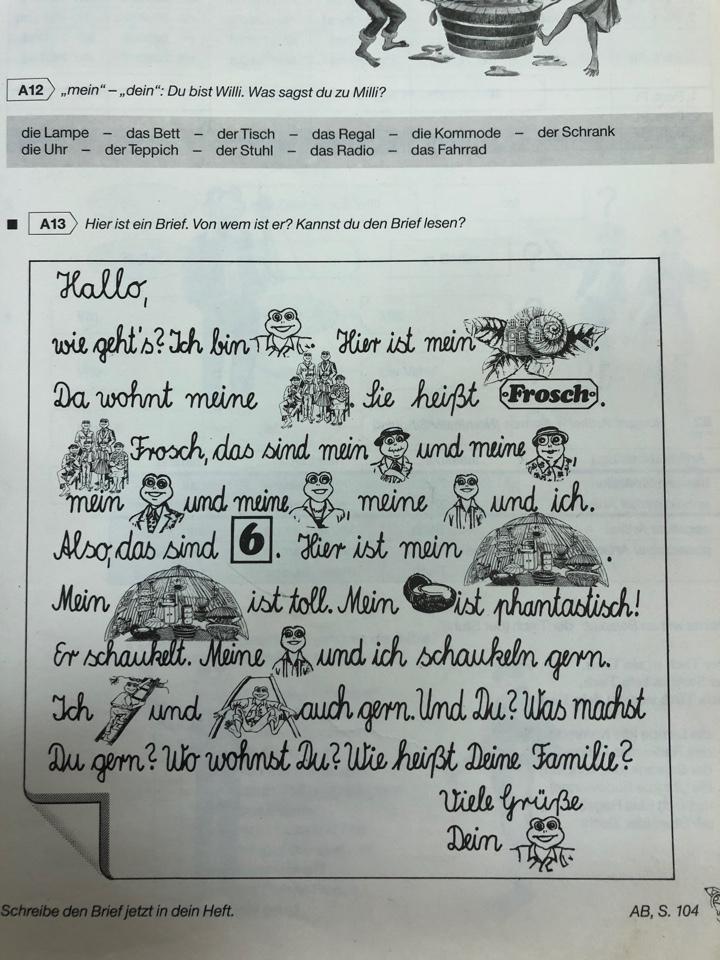 A12 „mein“ – „dein“: Du bist Willi. Was sagst du zu Milli?
die Lampe – das Bett – der Tisch – das Regal – die Kommode – der Schrank
die Uhr – der Teppich – der Stuhl – das Radio – das Fahrrad
A13 Hier ist ein Brief. Von wem ist er? Kannst du den Brief lesen?
Hallo,
wie geht's? Ich bin . Hier ist mein .
Da wohnt meine . Sie heißt Frosch.
Frosch, das sind mein und meine ,
mein und meine , meine und ich.
Also, das sind 6. Hier ist mein .
Mein ist toll. Mein ist phantastisch!
Er schaukelt. Meine und ich schaukeln gern.
Ich und auch gern. Und Du? Was machst
Du gern? Wo wohnst Du? Wie heißt Deine Familie?
Viele Grüße
Dein
Schreibe den Brief jetzt in dein Heft.
AB, S. 104